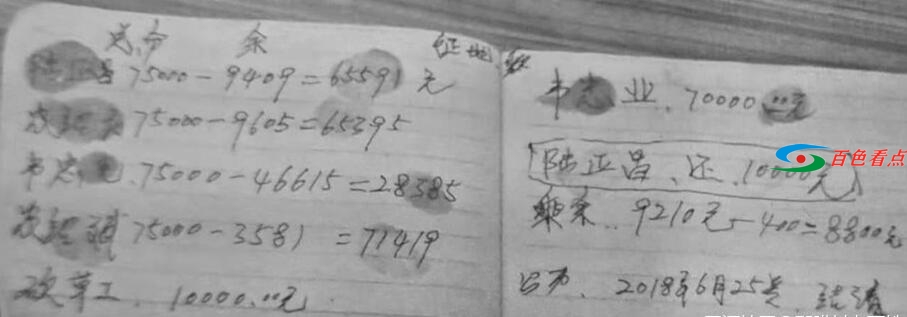 总亏 余 征地
陆正昌 75000-9409=65591元
75000-9605=65395
韦忠 75000-46615=28385
75000-3581=71419
改革工. 10000.00元
韦志业. 70000.00元
陆正昌、还、10000元
剩余.. 9210元-400=8800元
2018年6月25号
百色看点